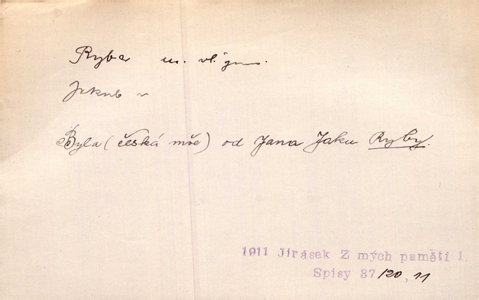 Ryba m. vl. jm.
Jakub v
Byla (česká mše) od Jana Jaku Ryby.
1911 Jirásek Z mých pamětí 1
Spisy 37 120, 11